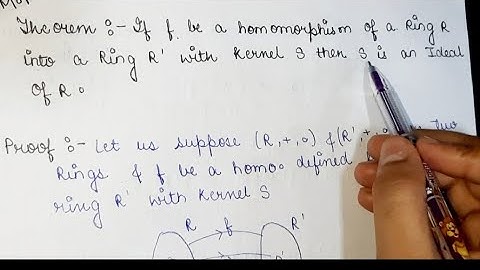 Theorem :- If f. be a homomorphism of a Ring R
into a Ring R' with Kernel S then S is an Ideal
of R.
Proof :- Let us suppose (R,+,o) & (R',+, Two
Rings & f be a homo. defined
ring R' with Kernel S
R f R'